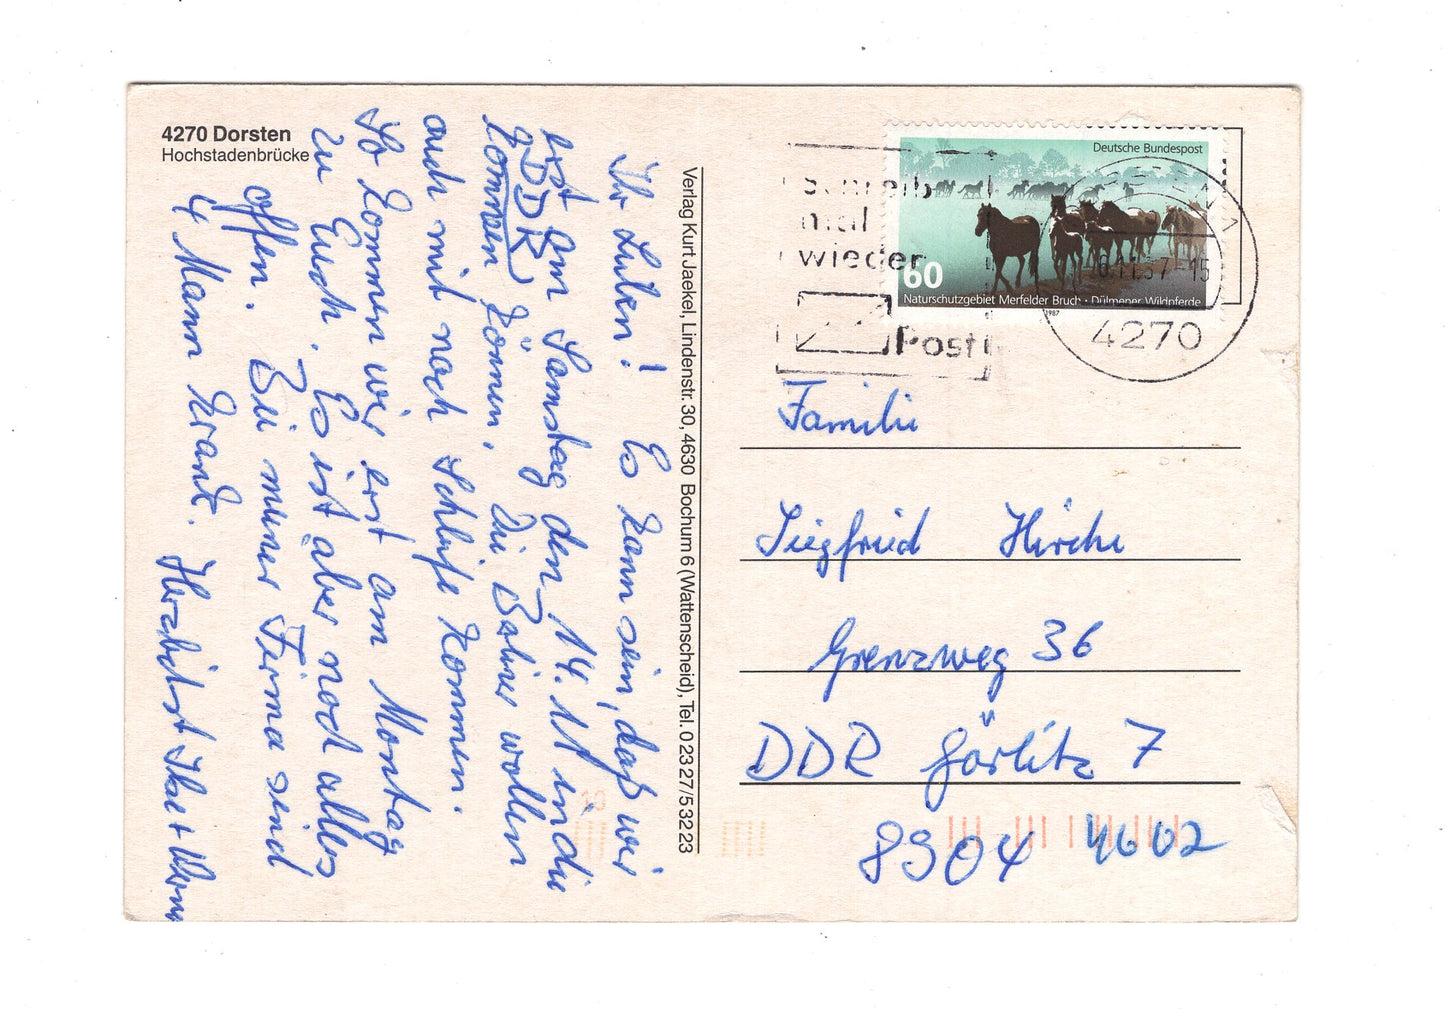 4270 Dorsten
Hochstadenbrücke
Ihr Lieben! Es kann sein, daß wir
erst am Samstag den 14.11 in die
DDR
kommen können. Die Bahner wollen
auch mit nach Schleife kommen.
So kommen wir erst am Montag
zu Euch. Es ist aber noch alles
offen. Bei meiner Firma sind
4 Mann krank. Herzlichst Ilse +
Verlag Kurt Jaekel, Lindenstr. 30, 4630 Bochum 6 (Wattenscheid), Tel. 0 23 27/5 32 23
Schreib
mal
wieder
Post
Deutsche Bundespost
60
Naturschutzgebiet Merfelder Bruch · Dülmener Wildpferde
1987
-15
4270
Familie
Siegfried Hirche
Grenzweg 36
DDR Görlitz 7
8904 4602